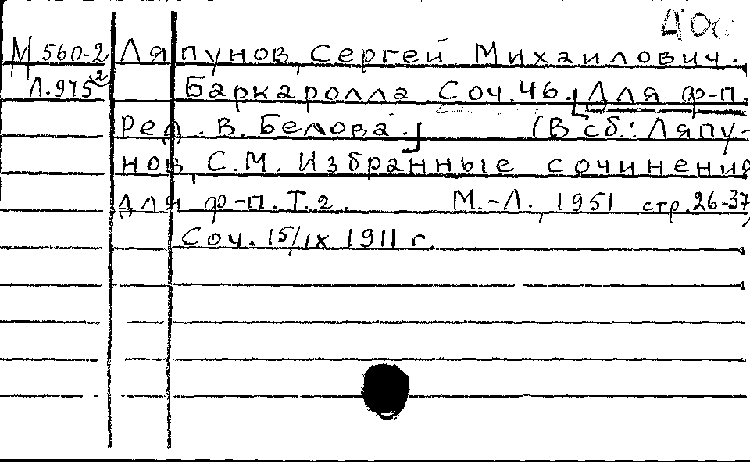 М 560-2 Ляпунов, Сергей Михайлович.
Л.975² Баркаролла Соч.46. [Для ф-п.
Ред. В. Белова.] (В сб.: Ляпу-
нов, С.М. Избранные сочинения
для ф-п. Т.2. М.-Л., 1951 стр.26-37)
Соч. 15/IX 1911 г.